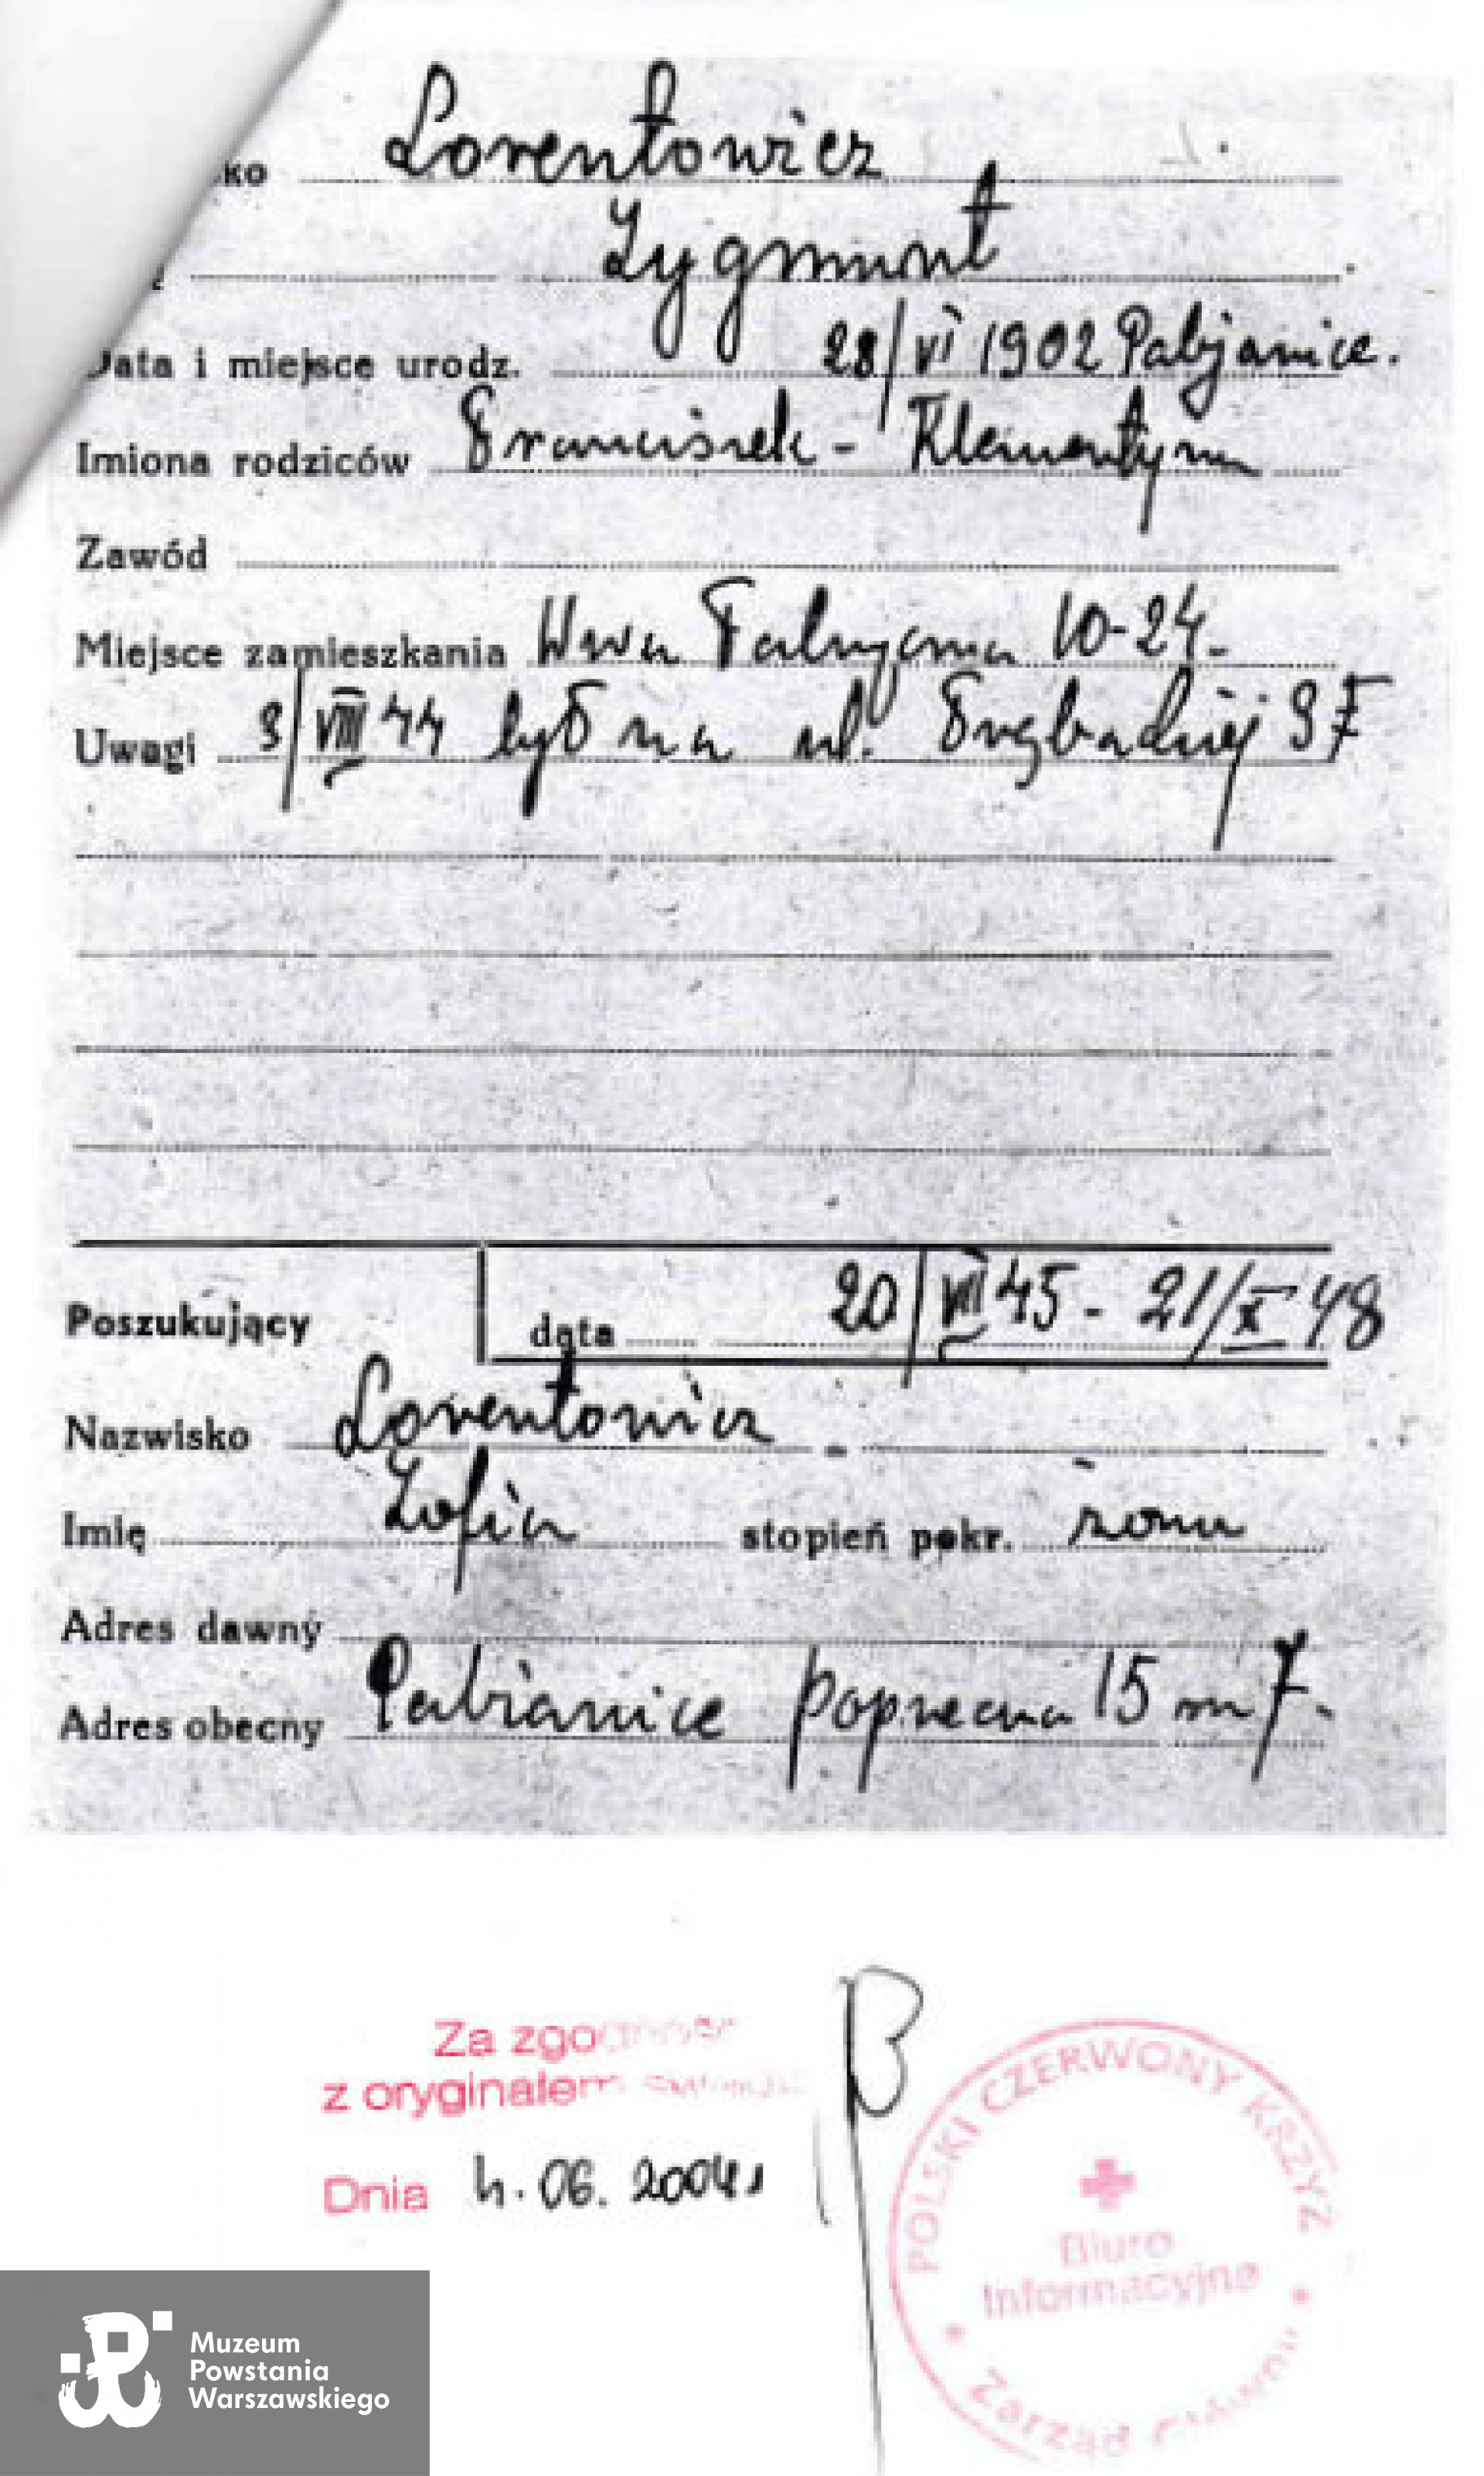 ko Lorentowicz
Zygmunt
Data i miejsce urodz. 28/VI 1902 Pabjanice.
Imiona rodziców Franciszek - Klementyna
Zawód
Miejsce zamieszkania Wwa Fabryczna 10-24-
Uwagi 3/VIII 44 był na ul.
Poszukujący data 20/VII 45 - 21/X 48
Nazwisko Lorentowicz -
Imię Zofia stopień pokr. żona
Adres dawny
Adres obecny Pabianice poprzeczna 15 m 7.
Za zgodność
z oryginałem
Dnia 4.06.2004
POLSKI CZERWONY KRZYŻ
Biuro
Informacyjne
Zarząd Główny
Muzeum
Powstania
Warszawskiego